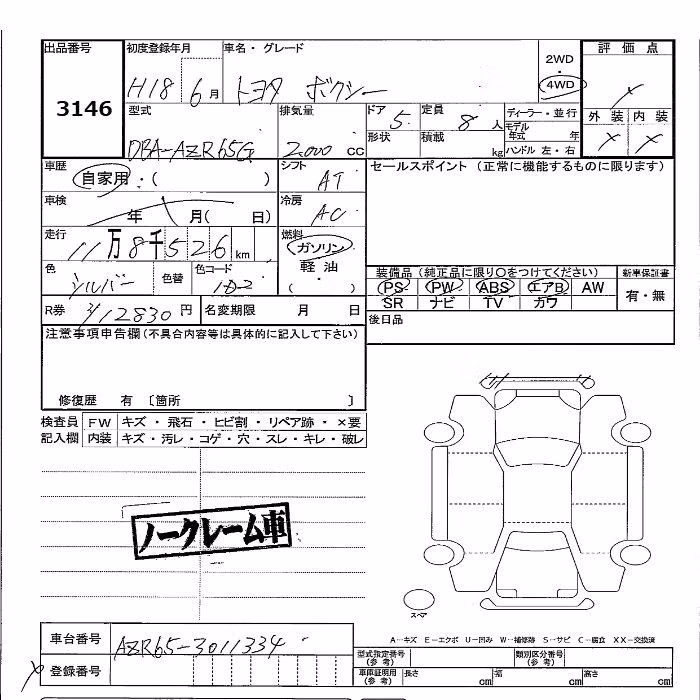 出品番号 初度登録年月 車名・グレード 2WD・4WD 評価点
3146 H18 6月 トヨタ ボクシー ×
型式 排気量 ドア 5 定員 8人 ディーラー・並行 外装 内装
DBA-AZR65G 2000cc 形状 積載 kg モデル年式 年 ハンドル 左・右 × ×
車歴 自家用・( ) シフト AT セールスポイント (正常に機能するものに限ります)
車検 年 月( 日) 冷房 AC
走行 11万8千526km 燃料 ガソリン
色 シルバー 色替 色コード 1D2 軽油 ( ・ )
装備品(純正品に限り〇をつけてください) 新車保証書
PS PW ABS エアB AW 有・無
SR ナビ TV カワ
R券 12830円 名変期限 月 日 後日品
注意事項申告欄(不具合内容等は具体的に記入して下さい)
修復歴 有 〔箇所 〕
検査員 FW キズ・飛石・ヒビ割・リペア跡・×要
記入欄 内装 キズ・汚レ・コゲ・穴・スレ・キレ・破レ
ノークレーム車
スペア
A--キズ E--エクボ U--凹み W--補修跡 S--サビ C--腐食 XX--交換済
車台番号 AZR65-3011334
登録番号
型式指定番号(参考) 類別区分番号(参考)
車庫証明用(参考) 長さ cm 幅 cm 高さ cm